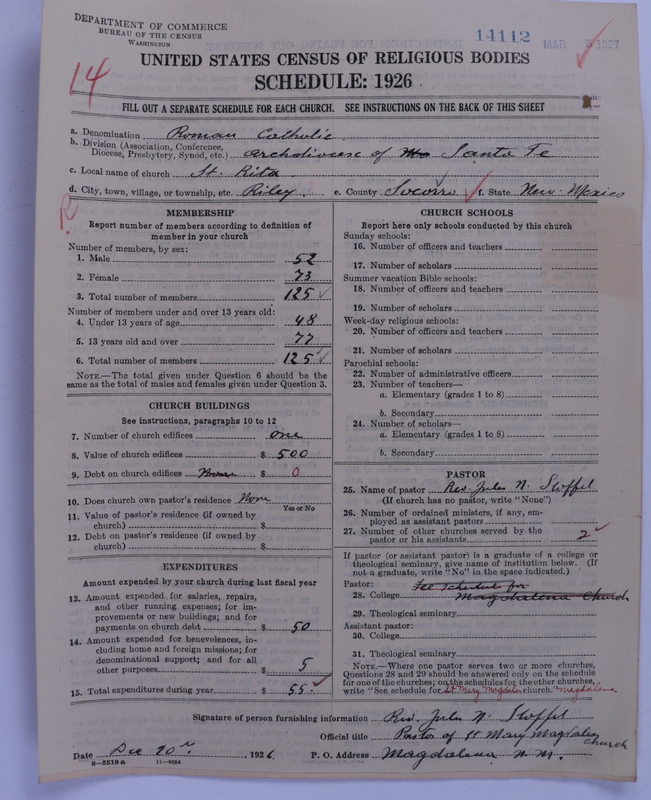 DEPARTMENT OF COMMERCE
BUREAU OF THE CENSUS
WASHINGTON
14112
MAR 5 1927
14
UNITED STATES CENSUS OF RELIGIOUS BODIES
SCHEDULE: 1926
FILL OUT A SEPARATE SCHEDULE FOR EACH CHURCH. SEE INSTRUCTIONS ON THE BACK OF THIS SHEET
a. Denomination Roman Catholic
b. Division (Association, Conference, Diocese, Presbytery, Synod, etc.) archdiocese of Santa Fe
c. Local name of church St. Rita
d. City, town, village, or township, etc. Riley e. County Socorro f. State New Mexico
R
MEMBERSHIP
Report number of members according to definition of
member in your church
Number of members, by sex:
1. Male 52
2. Female 73
3. Total number of members 125
Number of members under and over 13 years old:
4. Under 13 years of age 48
5. 13 years old and over 77
6. Total number of members 125
NOTE.—The total given under Question 6 should be
same as the total of males and females given under Question 3.
CHURCH BUILDINGS
See instructions, paragraphs 10 to 12
7. Number of church edifices one
8. Value of church edifices $ 500
9. Debt on church edifices None $ 0
10. Does church own pastor's residence None
Yes or No
11. Value of pastor's residence (if owned by
church) $
12. Debt on pastor's residence (if owned by
church) $
EXPENDITURES
Amount expended by your church during last fiscal year
13. Amount expended for salaries, repairs,
and other running expenses; for im-
provements or new buildings; and for
payments on church debt $ 50
14. Amount expended for benevolences, in-
cluding home and foreign missions; for
denominational support; and for all
other purposes $ 5
15. Total expenditures during year $ 55
CHURCH SCHOOLS
Report here only schools conducted by this church
Sunday schools:
16. Number of officers and teachers
17. Number of scholars
Summer vacation Bible schools:
18. Number of officers and teachers
19. Number of scholars
Week-day religious schools:
20. Number of officers and teachers
21. Number of scholars
Parochial schools:
22. Number of administrative officers
23. Number of teachers—
a. Elementary (grades 1 to 8)
b. Secondary
24. Number of scholars—
a. Elementary (grades 1 to 8)
b. Secondary
PASTOR
25. Name of pastor Rev. Jules N. Stoffel
(If church has no pastor, write "None")
26. Number of ordained ministers, if any, em-
ployed as assistant pastors
27. Number of other churches served by the
pastor or his assistants 2
If pastor (or assistant pastor) is a graduate of a college or
theological seminary, give name of institution below. (If
not a graduate, write "No" in the space indicated.)
Pastor: See Schedule for
28. College Magdalena Church
29. Theological seminary
Assistant pastor:
30. College
31. Theological seminary
NOTE.—Where one pastor serves two or more churches,
Questions 28 and 29 should be answered only on the schedule
for one of the churches; on the schedules for the other churches,
write "See schedule for St Mary Magdalen church." Magdalena
Signature of person furnishing information Rev. Jules N. Stoffel
Official title Pastor of St Mary Magdalen church
Date Dec 20, 1926. P. O. Address Magdalena N. M.
8—5518 a 11—9054